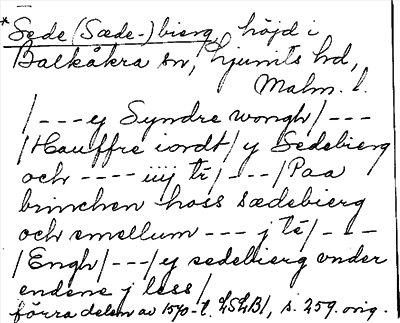 *Sede (Sæde-)bierg, höjd i
Balkåkra sn, Ljunits hd,
Malm. l.
/--- ey Syndre wongh/---
/Hauffre iordt/ y Sedebierg
och ---- iiij tr/---/Paa
brinchen hoss sædebierg
och emellum --- j te/---
/Engh/---/ey sedebierg vnder
endene j less/
förra delen av 1570-t. LSLB1, s. 259. orig.